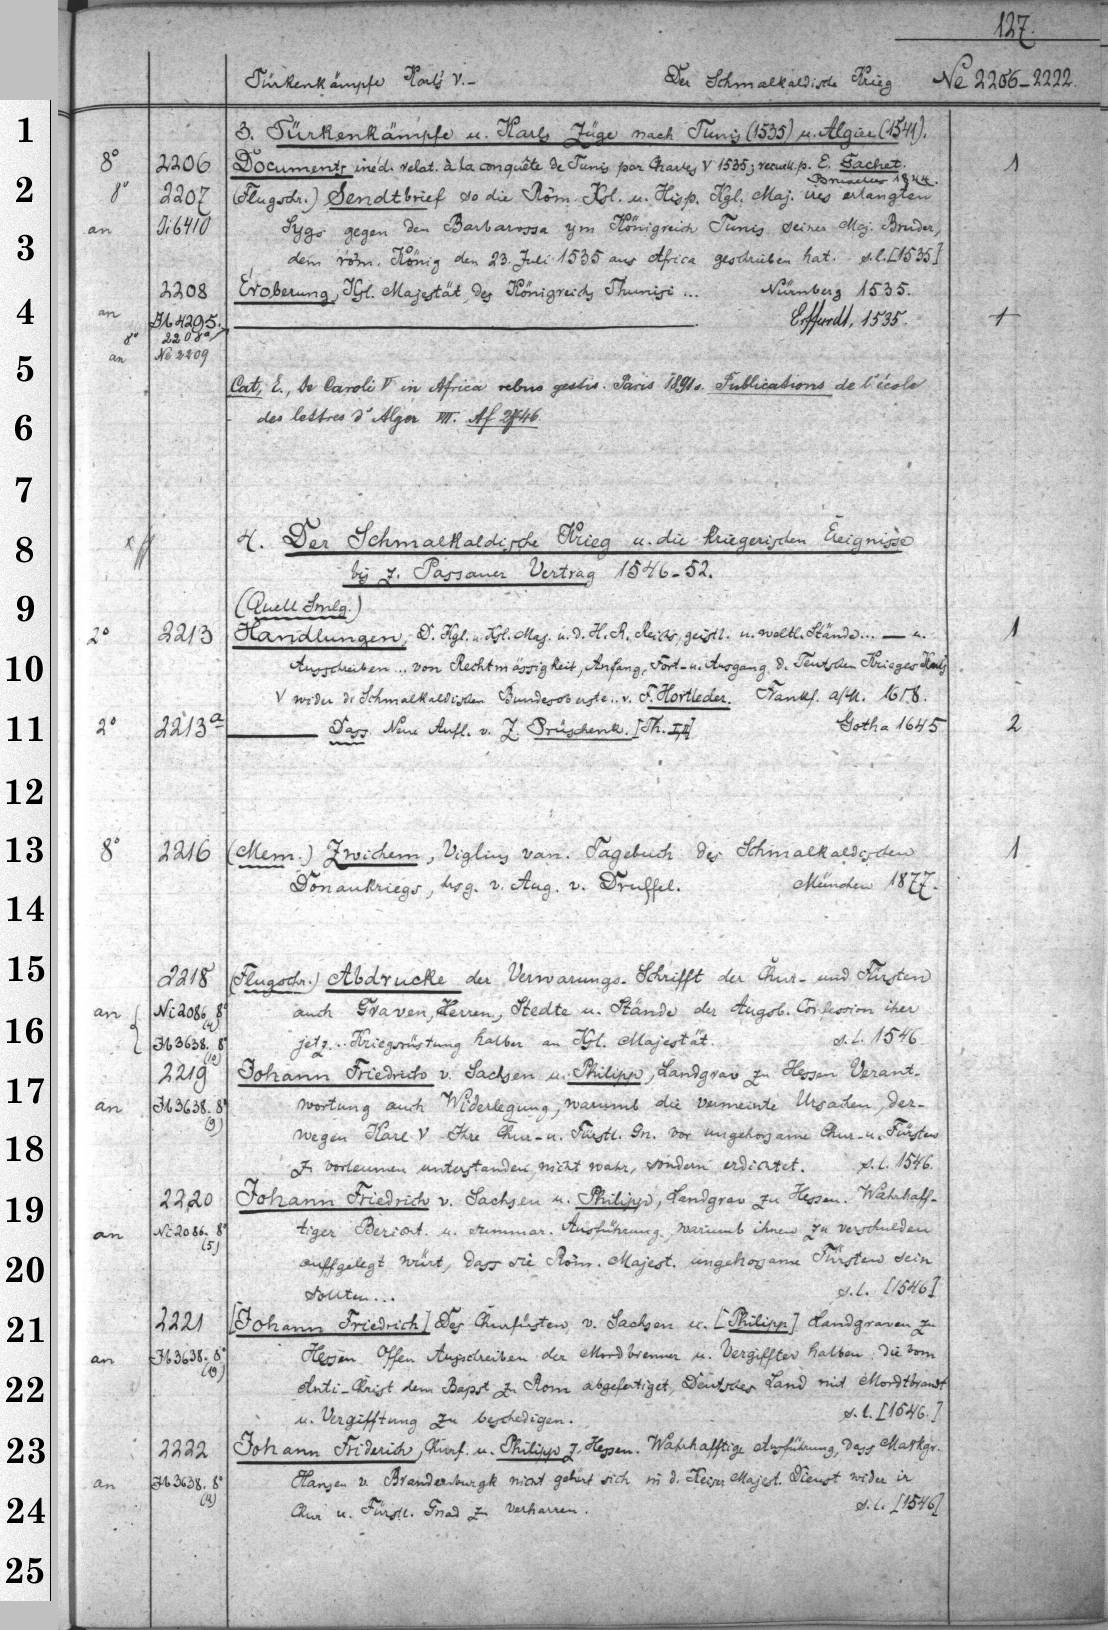 127.
Türkenkämpfe Karls V.– Der Schmalkaldische Krieg Ne 2206–2222.
1 3. Türkenkämpfe u. Karls Züge nach Tunis (1535) u. Algier (1541).
8° 2206 Documents inéd. relat. à la conquête de Tunis par Charles V 1535; recueil. p. E. Gachet. 1
Bruxelles 1844.
2 8° 2207 (Flugschr.) Sendtbrief so die Röm. Ksl. u. Hisp. Kgl. Maj. ires erlangten
an Ji 6410 Sygs gegen den Barbarossa ym Königreich Tunis seiner Maj. Bruder,
3 dem röm. König den 23. Juli 1535 aus Africa geschrieben hat. s.l. [1535]
2208 Eroberung, Ksl. Majestät, des Königreichs Thunisi ... Nürnberg 1535.
4 an Jb 4295. ——— . Erffurdt, 1535. 1
8° 2208a
an Ne 2209
5 Cat, E., De Caroli V in Africa rebus gestis. Paris 1891. Publications de l'école
6 des lettres d'Alger VII. Af 2746
7
8 4. Der Schmalkaldische Krieg u. die kriegerischen Ereignisse
bis z. Passauer Vertrag 1546–52.
9 (Quell Smlg.)
2° 2213 Handlungen, D. Kgl. u. Ksl. Maj. u. d. H. R. Reichs, geistl. u. weltl. Stände... — u. 1
10 Ausschreiben ... von Rechtmässigkeit, Anfang, Fort- u. Ausgang d. Teutschen Krieges Karls
V wider di Schmalkaldischen Bundesoberste .. v. F. Hortleder. Frankf. a/M. 1618.
11 2° 2213a ——— Dass. Neue Aufl. v. Z. Prüschenk. [Th. I,II] Gotha 1645 2
12
13 8° 2216 (Mem.) Zwichem, Viglius van. Tagebuch des Schmalkaldischen 1
Donaukriegs, hrsg. v. Aug. v. Druffel. München 1877.
14
15 2218 (Flugschr.) Abdrucke der Verwarungs-Schrifft der Chur- und Fürsten
an Ni 2086. 8° (4) auch Graven, Herren, Stedte u. Stände der Augsb. Confession iher
16 Jb 3638. 8° (10) jetz... Kriegsrüstung halber an Ksl. Majestät. s.l. 1546
17 2219 Johann Friedrich v. Sachsen u. Philipp, Landgrav zu Hessen Verant-
an Jb 3638. 8° (9) wortung auch Widerlegung, warumb die vermeinte Ursachen, der-
18 wegen Karl V Ihre Chur- u. Fürstl. Gn. vor ungehorsame Chur- u. Fürsten
zu vorleumen unterstanden, nicht wahr, sondern erdichtet. s.l. 1546.
19 2220 Johann Friedrich v. Sachsen u. Philipp, Landgrav zu Hessen. Wahrhaff-
an Ni 2086. 8° (5) tiger Bericht u. summar. Ausführung, warumb ihnen zu verschulden
20 auffgelegt würt, dass sie Röm. Majest. ungehorsame Fürsten sein
sollten... s.l. [1546]
21 2221 [Johann Friedrich] Des Churfürsten v. Sachsen u. [Philipp] Landgraven zu
an Jb 3638. 8° Hessen Offen Ausschreiben der Mordbrenner u. Vergiffter halben die vom
22 Anti-Christ dem Bapst zu Rom abgefertiget, Deutsches Land mit Mordtbrandt
u. Vergifftung zu beschedigen. s.l. [1546.]
23 2222 Johann Friderich, Churf. u. Philipp z. Hessen. Wahrhafftige Ausführung, dass Markgr.
an Jb 3638. 8° Hansen v. Brandenburgk nicht gebürt sich in d. Keiser Majest. Dienst wider ir
24 Chur u. Fürstl. Gnad zu verharren. s.l. [1546]
25